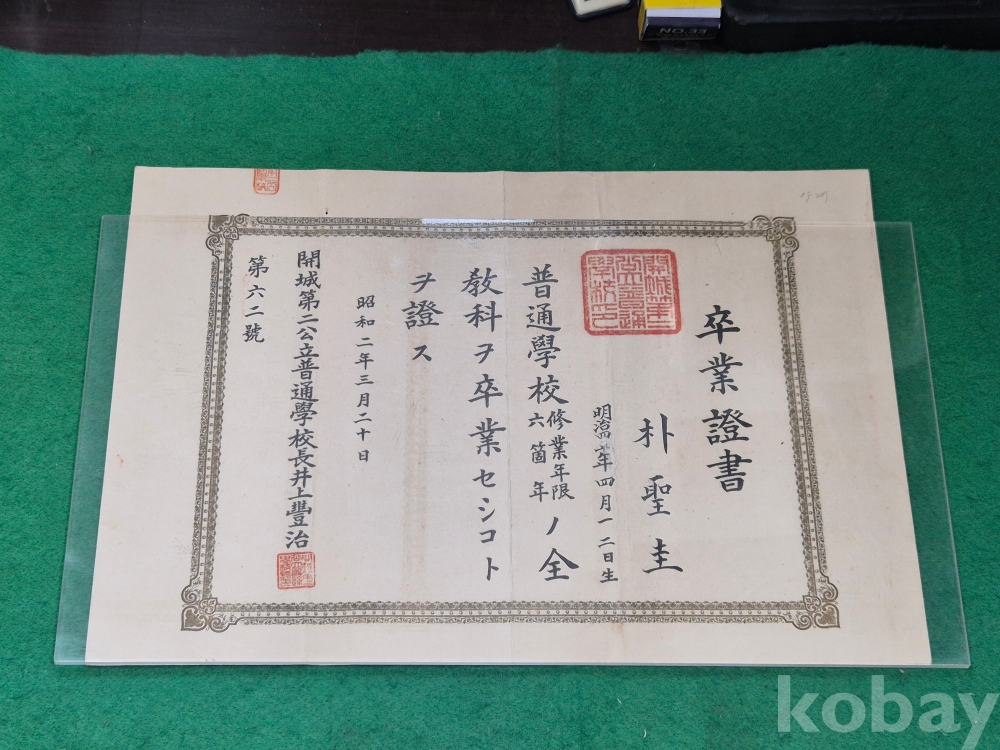 卒業證書
朴聖圭
明治 年四月一二日生
普通學校修業年限六箇年ノ全
教科ヲ卒業セシコト
ヲ證ス
昭和二年三月二十日
開城第二公立普通學校長井上豐治
第六二號
開城第二
公立普通
學校印
NO.33
kobay